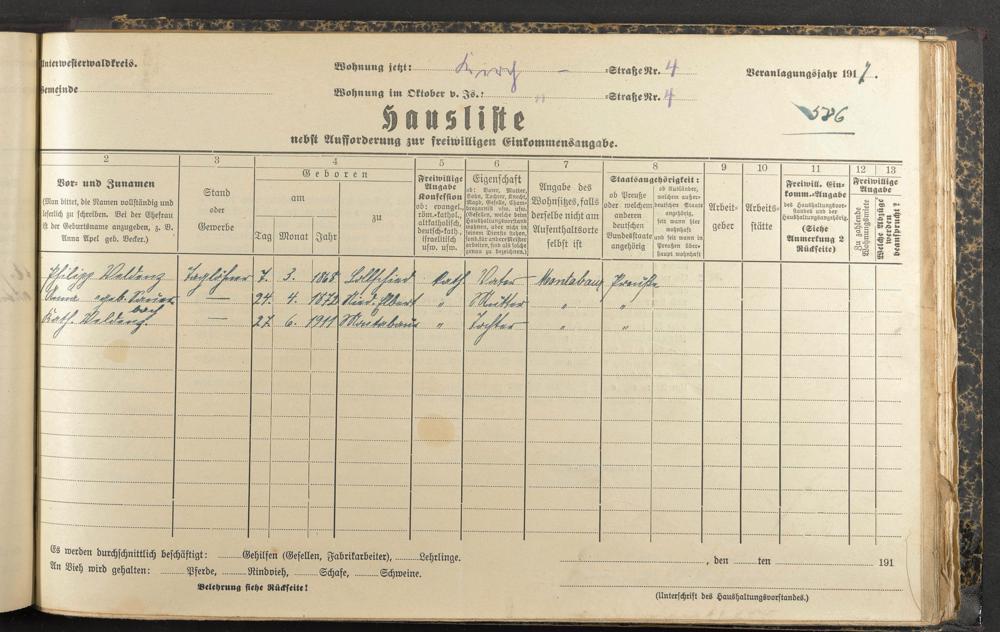 Unterwesterwaldkreis.
Wohnung jetzt: Kirch – =Straße Nr. 4
Veranlagungsjahr 1917.
Gemeinde
Wohnung im Oktober v. Js.: " =Straße Nr. 4
526
Hausliste
nebst Aufforderung zur freiwilligen Einkommensangabe.
2 3 4 5 6 7 8 9 10 11 12 13
Vor- und Zunamen
(Man bittet, die Namen vollständig und
leserlich zu schreiben. Bei der Ehefrau
ist der Geburtsname anzugeben, z. B.
Anna Apel geb. Becker.)
Stand
oder
Gewerbe
Geboren
am
zu
Tag Monat Jahr
Freiwillige
Angabe
Konfession
ob: evangel.,
röm.-kathol.,
altkatholisch,
deutsch-kath.,
israelitisch
usw. usw.
Eigenschaft
ob: Vater, Mutter,
Sohn, Tochter, Knecht,
Magd, Geselle,
usw. usw.
(Gesellen, welche beim
Haushaltungsvorstand
wohnen, aber nicht in
seinem Dienste stehen,
sind als solche
genau zu bezeichnen.)
Angabe des
Wohnsitzes, falls
derselbe nicht am
Aufenthaltsorte
selbst ist
Staatsangehörigkeit:
ob Preuße
oder welchem
anderen
deutschen
Bundesstaate
angehörig
ob Ausländer,
welchem außer-
deutschen Staate
angehörig,
seit wann hier
wohnhaft
und seit wann in
Preußen über-
haupt wohnhaft
Arbeit-
geber
Arbeits-
stätte
Freiwill. Ein-
komm.-Angabe
des Haushaltungsvor-
standes und der
Haushaltungsangehörig.
(Siehe
Anmerkung 2
Rückseite)
Freiwillige
Angabe
Zu zahlende
Wohnungsmiete
Welche Abzüge
werden
beansprucht?
Philipp Weldenz Taglöhner 7. 3. 1868 Kath. Vater Montabaur Preuße
Anna geb. Sauer — 24. 4. 1872 Nied. Elbert " Mutter " "
bach
Kath. Weldenz. — 27. 6. 1911 Montabaur " Tochter " "
Es werden durchschnittlich beschäftigt: Gehilfen (Gesellen, Fabrikarbeiter), Lehrlinge.
An Vieh wird gehalten: Pferde, Rindvieh, Schafe, Schweine.
Belehrung siehe Rückseite!
, den ten 191
(Unterschrift des Haushaltungsvorstandes.)